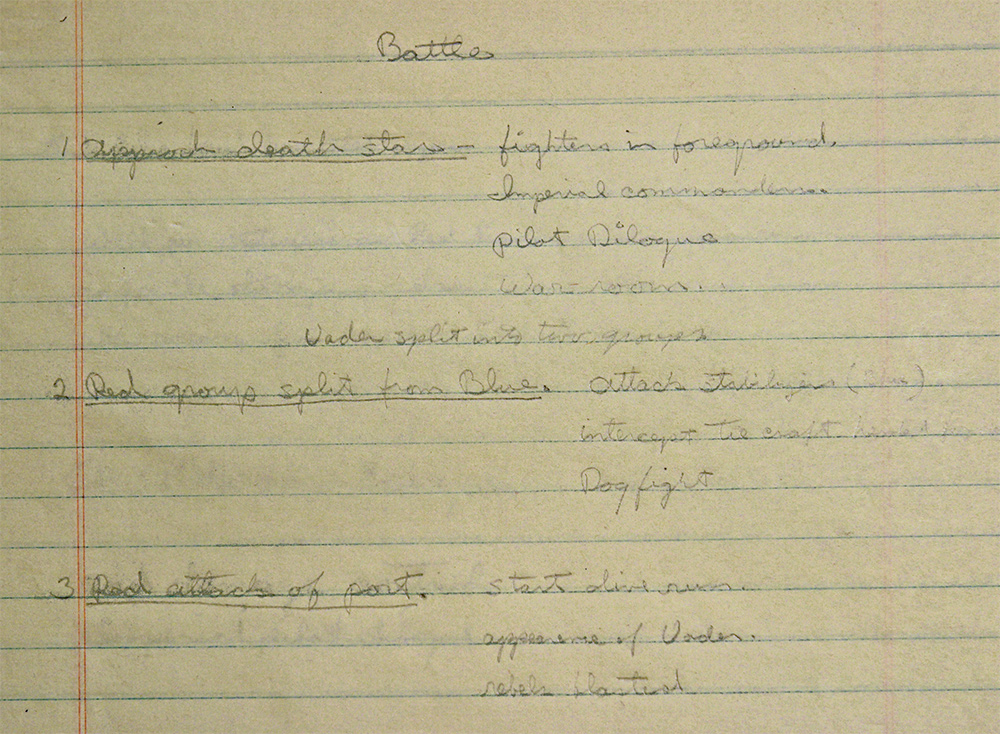 Battle
1 Approach death star - fighters in foreground.
Imperial commanders.
Pilot Diloque
War room.
Vader split into two groups
2 Red group split from Blue. attack stabilizers (Blue)
intercept tie craft
Dog fight
3 Red attack of port. start dive run.
appearence of Vader.
rebels